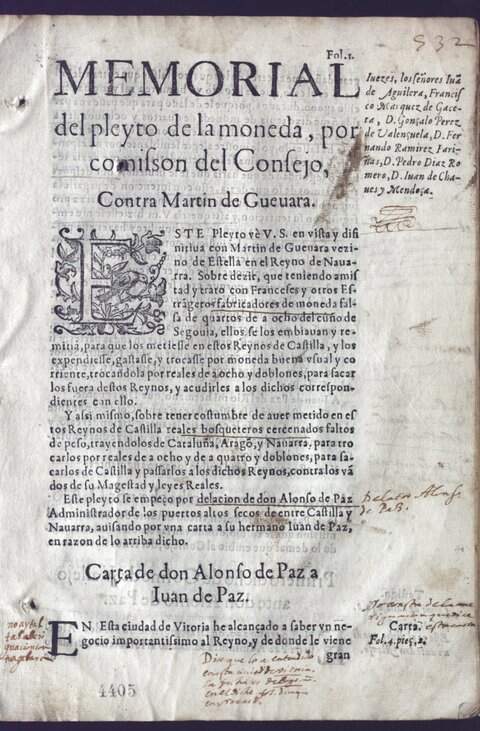 Fol. 1.
532
MEMORIAL
del pleyto de la moneda, por
comisson del Consejo,
Contra Martin de Gueuara.
Iuezes, los señores Iuã
de Aguilera, Francis
co Marquez de Gace-
ta, D. Gonçalo Perez
de Valençuela, D. Fer
nando Ramirez Fari
ñas, D. Pedro Diaz Ro
mero, D. Iuan de Cha
ues y Mendoza.
ESTE Pleyto vè V. S. en vista y difi
nitiua con Martin de Gueuara vezi
no de Estella en el Reyno de Naua
rra. Sobre dezir, que teniendo amis
tad y trato con Franceses y otros Es
trãgeros fabricadores de moneda fal
sa de quartos de a ocho del cuño de
Segouia, ellos se los embiauan y re-
mitiã, para que los metiesse en estos Reynos de Castilla, y los
expendiesse, gastasse, y trocasse por moneda buena vsual y co
rriente, trocandola por reales de a ocho y doblones, para sacar
los fuera destos Reynos, y acudirles a los dichos correspon-
dientes con ello.
Y assi mismo, sobre tener costumbre de auer metido en es
tos Reynos de Castilla reales bosqueteros cercenados faltos
de peso, trayendolos de Cataluña, Aragõ, y Nauarra, para tro
carlos por reales de a ocho y de a quatro y doblones, para sa-
carlos de Castilla y passarlos a los dichos Reynos, contra los vã
dos de su Magestad y leyes Reales.
Este pleyto se empeço por delacion de don Alonso de Paz
Administrador de los puertos altos secos de entre Castilla y
Nauarra, auisando por vna carta a su hermano Iuan de Paz,
en razon de lo arriba dicho.
Delator Alonso
de Paz.
Carta de don Alonso de Paz a
Iuan de Paz.
EN Esta ciudad de Vitoria he alcançado a saber vn ne
gocio importantissimo al Reyno, y de donde le viene
gran
Carta.
Fol. 4. pieç. 2.
4405